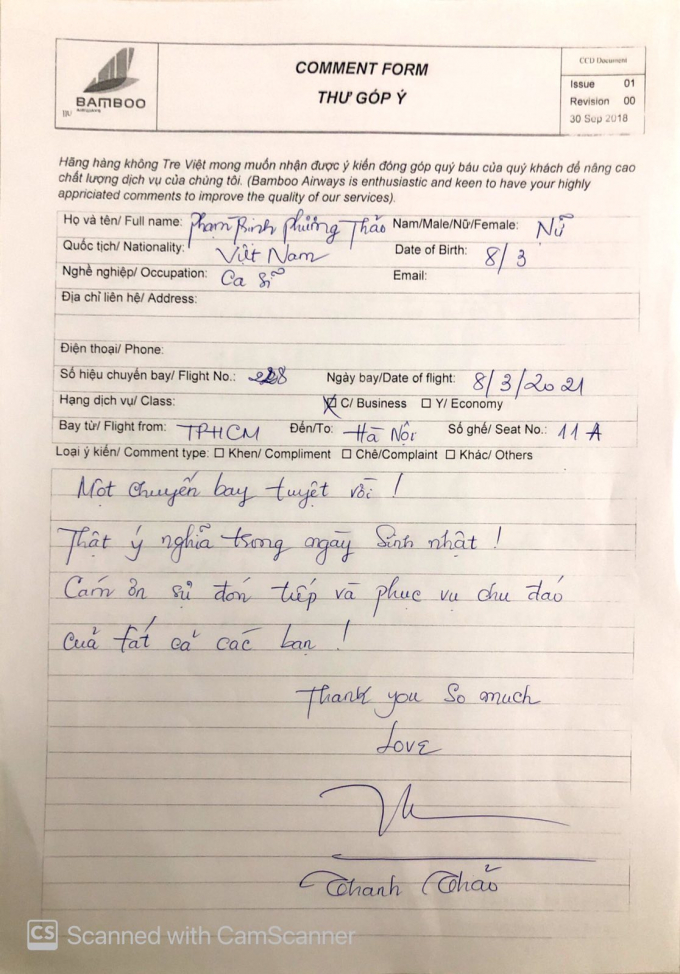 BAMBOO
AIRWAYS
COMMENT FORM
THƯ GÓP Ý
CCD Document
Issue 01
Revision 00
30 Sep 2018
Hãng hàng không Tre Việt mong muốn nhận được ý kiến đóng góp quý báu của quý khách để nâng cao
chất lượng dịch vụ của chúng tôi. (Bamboo Airways is enthusiastic and keen to have your highly
appriciated comments to improve the quality of our services).
Họ và tên/ Full name: Phạm Trịnh Phương Thảo Nam/Male/Nữ/Female: Nữ
Quốc tịch/ Nationality: Việt Nam Date of Birth: 8/3
Nghề nghiệp/ Occupation: Ca sĩ Email:
Địa chỉ liên hệ/ Address:
Điện thoại/ Phone:
Số hiệu chuyến bay/ Flight No.: 228 Ngày bay/Date of flight: 8/3/2021
Hạng dịch vụ/ Class: C/ Business Y/ Economy
Bay từ/ Flight from: TPHCM Đến/To: Hà Nội Số ghế/ Seat No.: 11A
Loại ý kiến/ Comment type: Khen/ Compliment Chê/Complaint Khác/ Others
Một chuyến bay tuyệt vời !
Thật ý nghĩa trong ngày Sinh nhật !
Cám ơn sự đón tiếp và phục vụ chu đáo
của tất cả các bạn !
Thank you So much
Love
Thanh Thảo
CS Scanned with CamScanner